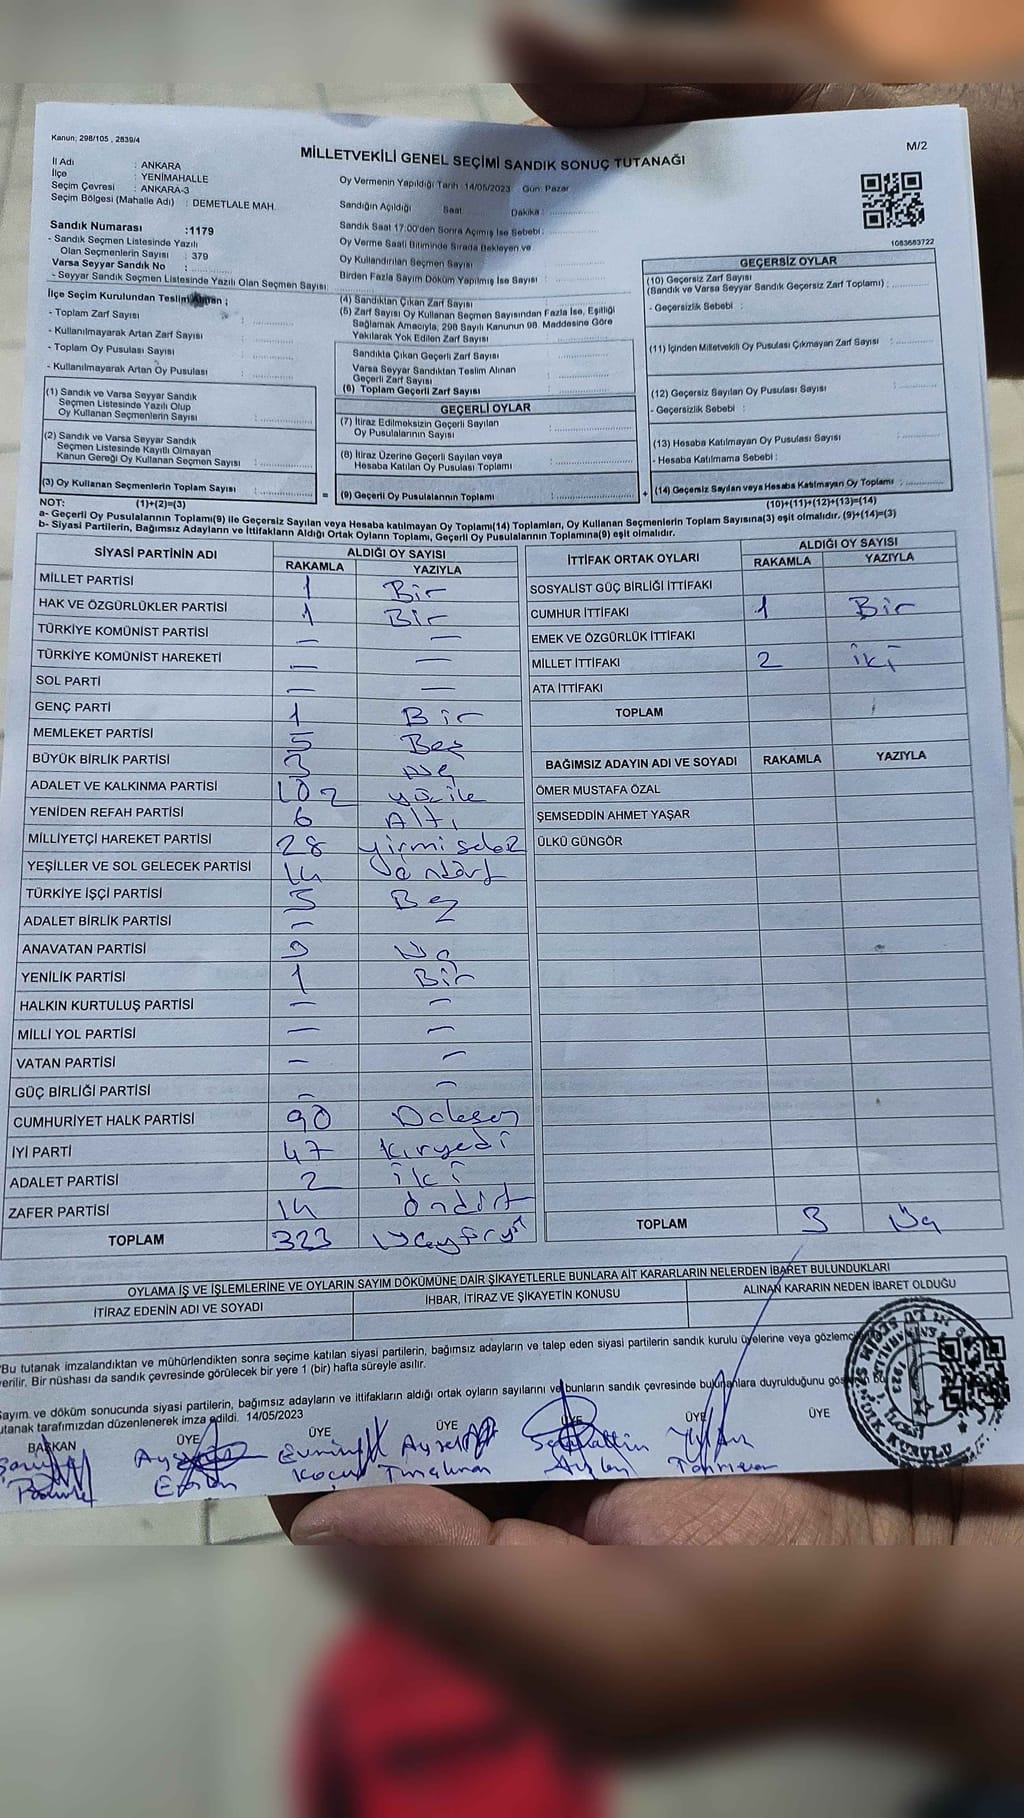 Kanun; 298/105 , 2839/4
MİLLETVEKİLİ GENEL SEÇİMİ SANDIK SONUÇ TUTANAĞI
M/2
İl Adı : ANKARA
İlçe : YENİMAHALLE
Seçim Çevresi : ANKARA-3
Seçim Bölgesi (Mahalle Adı) : DEMETLALE MAH.
Sandık Numarası :1179
- Sandık Seçmen Listesinde Yazılı
Olan Seçmenlerin Sayısı : 379
Varsa Seyyar Sandık No :
- Seyyar Sandık Seçmen Listesinde Yazılı Olan Seçmen Sayısı:
Oy Vermenin Yapıldığı Tarih :14/05/2023 Gün: Pazar
Sandığın Açıldığı Saat Dakika :
Sandık Saat 17:00'den Sonra Açımış İse Sebebi :
Oy Verme Saati Bitiminde Sırada Bekleyen ve
Oy Kullandırılan Seçmen Sayısı :
Birden Fazla Sayım Döküm Yapılmış İse Sayısı :
1083683722
İlçe Seçim Kurulundan Teslim Alınan ;
- Toplam Zarf Sayısı :
- Kullanılmayarak Artan Zarf Sayısı :
- Toplam Oy Pusulası Sayısı :
- Kullanılmayarak Artan Oy Pusulası :
(1) Sandık ve Varsa Seyyar Sandık
Seçmen Listesinde Yazılı Olup
Oy Kullanan Seçmenlerin Sayısı :
(2) Sandık ve Varsa Seyyar Sandık
Seçmen Listesinde Kayıtlı Olmayan
Kanun Gereği Oy Kullanan Seçmen Sayısı :
(3) Oy Kullanan Seçmenlerin Toplam Sayısı :
(1)+(2)=(3)
(4) Sandıktan Çıkan Zarf Sayısı :
(5) Zarf Sayısı Oy Kullanan Seçmen Sayısından Fazla İse, Eşitliği
Sağlamak Amacıyla, 298 Sayılı Kanunun 98. Maddesine Göre
Yakılarak Yok Edilen Zarf Sayısı :
Sandıkta Çıkan Geçerli Zarf Sayısı :
Varsa Seyyar Sandıktan Teslim Alınan
Geçerli Zarf Sayısı :
(6) Toplam Geçerli Zarf Sayısı :
GEÇERLİ OYLAR
(7) İtiraz Edilmeksizin Geçerli Sayılan
Oy Pusulalarının Sayısı :
(8) İtiraz Üzerine Geçerli Sayılan veya
Hesaba Katılan Oy Pusulası Toplamı :
= (9) Geçerli Oy Pusulalarının Toplamı :
GEÇERSİZ OYLAR
(10) Geçersiz Zarf Sayısı
(Sandık ve Varsa Seyyar Sandık Geçersiz Zarf Toplamı) :
- Geçersizlik Sebebi :
(11) İçinden Milletvekili Oy Pusulası Çıkmayan Zarf Sayısı :
(12) Geçersiz Sayılan Oy Pusulası Sayısı :
- Geçersizlik Sebebi :
(13) Hesaba Katılmayan Oy Pusulası Sayısı :
- Hesaba Katılmama Sebebi :
+ (14) Geçersiz Sayılan veya Hesaba Katılmayan Oy Toplamı :
(10)+(11)+(12)+(13)=(14)
NOT:
a- Geçerli Oy Pusulalarının Toplamı(9) ile Geçersiz Sayılan veya Hesaba katılmayan Oy Toplamı(14) Toplamları, Oy Kullanan Seçmenlerin Toplam Sayısına(3) eşit olmalıdır. (9)+(14)=(3)
b- Siyasi Partilerin, Bağımsız Adayların ve İttifakların Aldığı Oyların Toplamı, Geçerli Oy Pusulalarının Toplamına(9) eşit olmalıdır.
SİYASİ PARTİNİN ADI ALDIĞI OY SAYISI
RAKAMLA YAZIYLA
MİLLET PARTİSİ 1 Bir
HAK VE ÖZGÜRLÜKLER PARTİSİ 1 Bir
TÜRKİYE KOMÜNİST PARTİSİ — —
TÜRKİYE KOMÜNİST HAREKETİ — —
SOL PARTİ — —
GENÇ PARTİ 1 Bir
MEMLEKET PARTİSİ 5 Beş
BÜYÜK BİRLİK PARTİSİ 3 Üç
ADALET VE KALKINMA PARTİSİ 102 yüziki
YENİDEN REFAH PARTİSİ 6 Altı
MİLLİYETÇİ HAREKET PARTİSİ 28 yirmisekiz
YEŞİLLER VE SOL GELECEK PARTİSİ 14 Ondört
TÜRKİYE İŞÇİ PARTİSİ 5 Beş
ADALET BİRLİK PARTİSİ —
ANAVATAN PARTİSİ 3 Üç
YENİLİK PARTİSİ 1 Bir
HALKIN KURTULUŞ PARTİSİ — —
MİLLİ YOL PARTİSİ — —
VATAN PARTİSİ — —
GÜÇ BİRLİĞİ PARTİSİ — —
CUMHURİYET HALK PARTİSİ 90 Doksan
İYİ PARTİ 47 Kırkyedi
ADALET PARTİSİ 2 iki
ZAFER PARTİSİ 14 Ondört
TOPLAM 323
İTTİFAK ORTAK OYLARI ALDIĞI OY SAYISI
RAKAMLA YAZIYLA
SOSYALİST GÜÇ BİRLİĞİ İTTİFAKI
CUMHUR İTTİFAKI 1 Bir
EMEK VE ÖZGÜRLÜK İTTİFAKI
MİLLET İTTİFAKI 2 iki
ATA İTTİFAKI
TOPLAM
BAĞIMSIZ ADAYIN ADI VE SOYADI RAKAMLA YAZIYLA
ÖMER MUSTAFA ÖZAL
ŞEMSEDDİN AHMET YAŞAR
ÜLKÜ GÜNGÖR
TOPLAM 3 Üç
OYLAMA İŞ VE İŞLEMLERİNE VE OYLARIN SAYIM DÖKÜMÜNE DAİR ŞİKAYETLERLE BUNLARA AİT KARARLARIN NELERDEN İBARET BULUNDUKLARI
İTİRAZ EDENİN ADI VE SOYADI İHBAR, İTİRAZ VE ŞİKAYETİN KONUSU ALINAN KARARIN NEDEN İBARET OLDUĞU
Bu tutanak imzalandıktan ve mühürlendikten sonra seçime katılan siyasi partilerin, bağımsız adayların ve talep eden siyasi partilerin sandık kurulu üyelerine veya
verilir. Bir nüshası da sandık çevresinde görülecek bir yere 1 (bir) hafta süreyle asılır.
Sayım ve döküm sonucunda siyasi partilerin, bağımsız adayların ve ittifakların aldığı ortak oyların sayılarını ve bunların sandık çevresinde bulunanlara duyurulduğunu
tutanak tarafımızdan düzenlenerek imza edildi. 14/05/2023
BAŞKAN ÜYE ÜYE ÜYE ÜYE ÜYE ÜYE